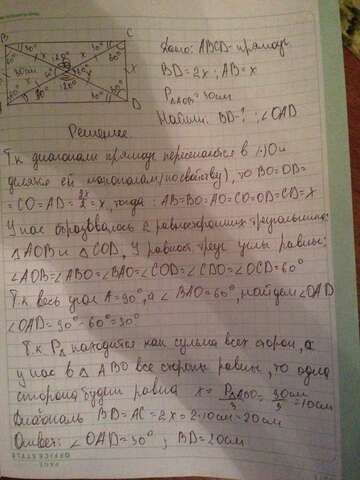 B C
30° 30°
60° 120° 60°
x x
30см 60° 60° x
120°
30° 30°
D
Дано: ABCD - прямоуг.
BD=2x; AB=x
P△AOB=30см
Найти: BD-?; ∠OAD
Решение
Т.к диагонали прямоуг пересекаются в (·)O и
делятся ей пополам(по свойству), то BO=OD=
=CO=AO=2x/2=x, тогда: AB=BO=AO=CO=OD=CD=x
У нас образовалось 2 равносторонних треугольника:
△AOB и △COD, У равност. треуг углы равны:
∠AOB=∠ABO=∠BAO=∠COD=∠CDO=∠OCD=60°
Т.к весь угол A=90°, а ∠BAO=60°, найдём ∠OAD
∠OAD=90°-60°=30°
Т.к P△ находится как сумма всех сторон, а
у нас в △ABO все стороны равны, то одна
сторона будет равна x=P△ABO/3=30см/3=10см
Диагональ BD=AC=2x=2·10см=20см
Ответ: ∠OAD=30°; BD=20см
PAGE
OFFICE SPACE